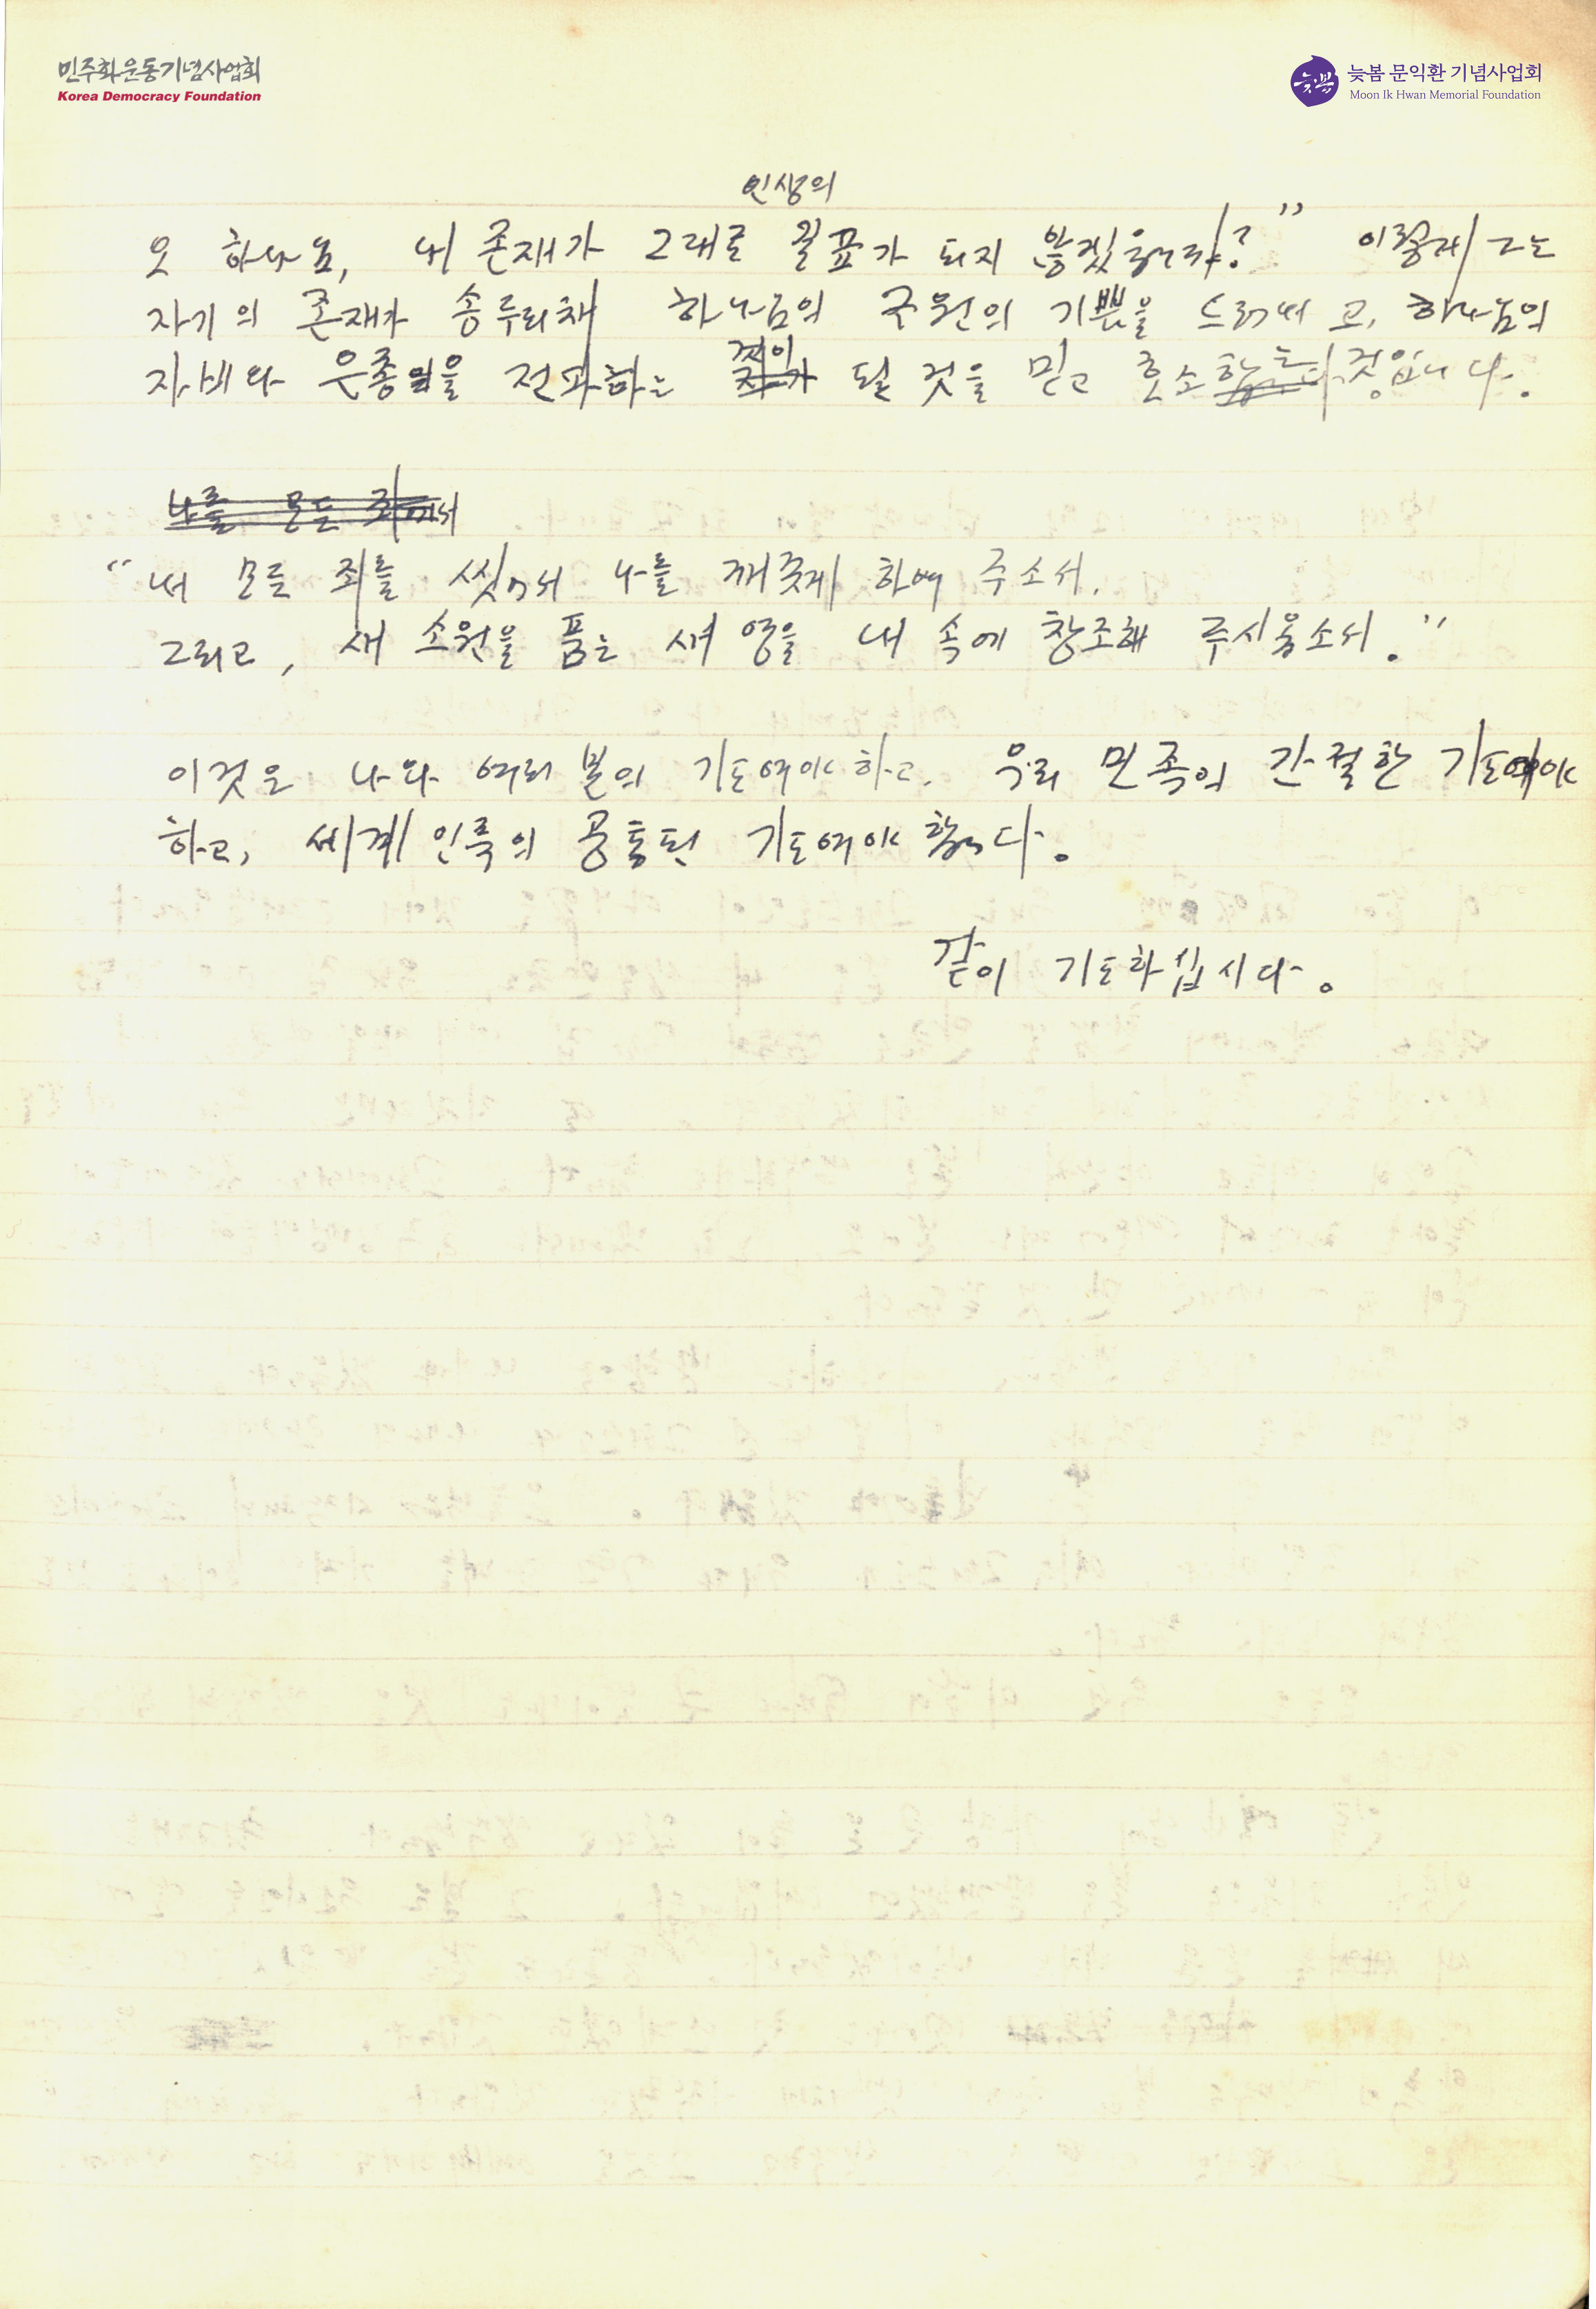 민주화운동기념사업회
Korea Democracy Foundation
늦봄 문익환 기념사업회
Moon Ik Hwan Memorial Foundation
인생의
오 하나님, 내 존재가 그대로 푯가 되지 않겠읍니까?" 이렇게 그는
자기의 존재가 송두리채 하나님의 구원의 기쁨을 드러내고, 하나님의
자비와 은총을 전파하는 것이 될 것을 믿고 호소하는 것입니다.
나를 모든 죄에서
"내 모든 죄를 씻어서 나를 깨끗게 하여 주소서.
그리고, 새 소원을 품는 새 영을 내 속에 창조해 주시옵소서."
이것은 나와 여러분의 기도여야 하고, 우리 민족의 간절한 기도여야
하고, 세계 인류의 공통된 기도여야 합니다.
같이 기도하십시다.